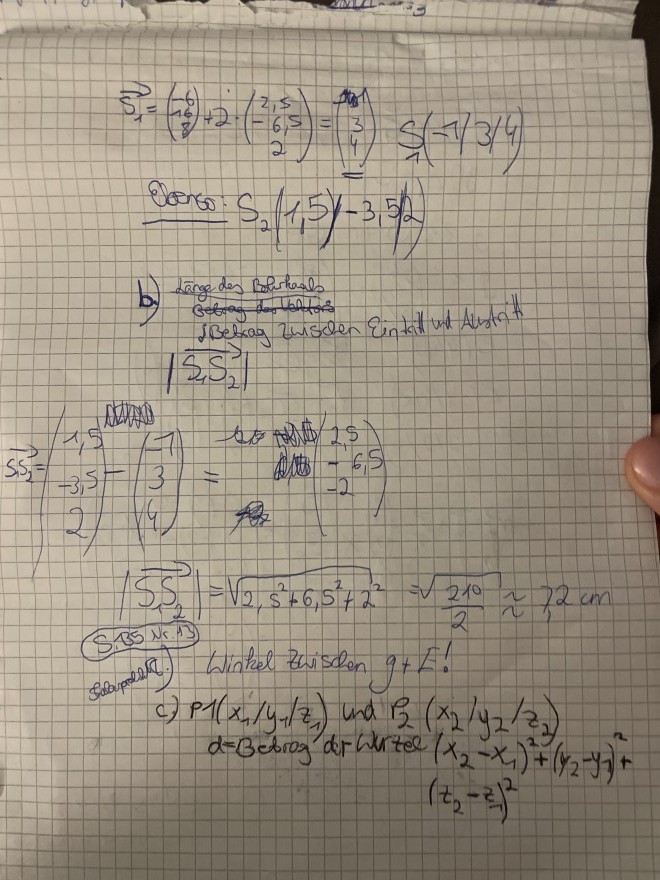 S₁→ = (-6 / -16 / 8) + 2 · (2,5 / -6,5 / 2) = ( / 3 / 4) S₁(-1/3/4)
Ebenso: S₂(1,5/-3,5/2)
b) Länge des Bohrkanals
Betrag des Vektors
Betrag zwischen Eintritt und Austritt
|S₁S₂→|
S₁S₂→ = (1,5 / -3,5 / 2) - (-1 / 3 / 4) = (2,5 / -6,5 / -2)
|S₁S₂→| = √2,5²+6,5²+2² = √210/2 ≈ 7,2 cm
S.135 Nr. 13
Winkel zwischen g+E!
c) P1(x₁/y₁/z₁) und P₂(x₂/y₂/z₂)
d=Betrag der Wurzel (x₂-x₁)²+(y₂-y₁)²+
(z₂-z₁)²